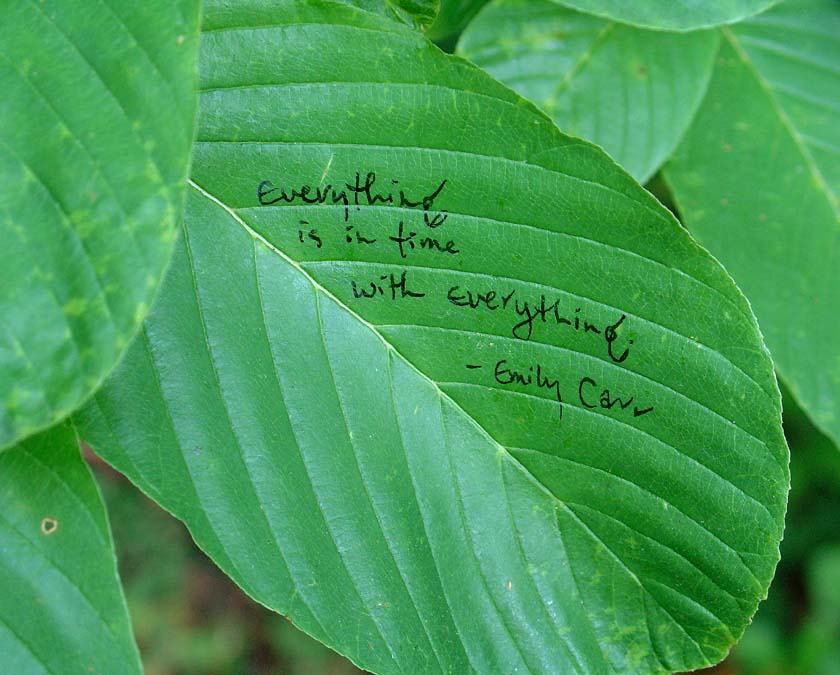 Everything
is in time
with everything.
- Emily Carr